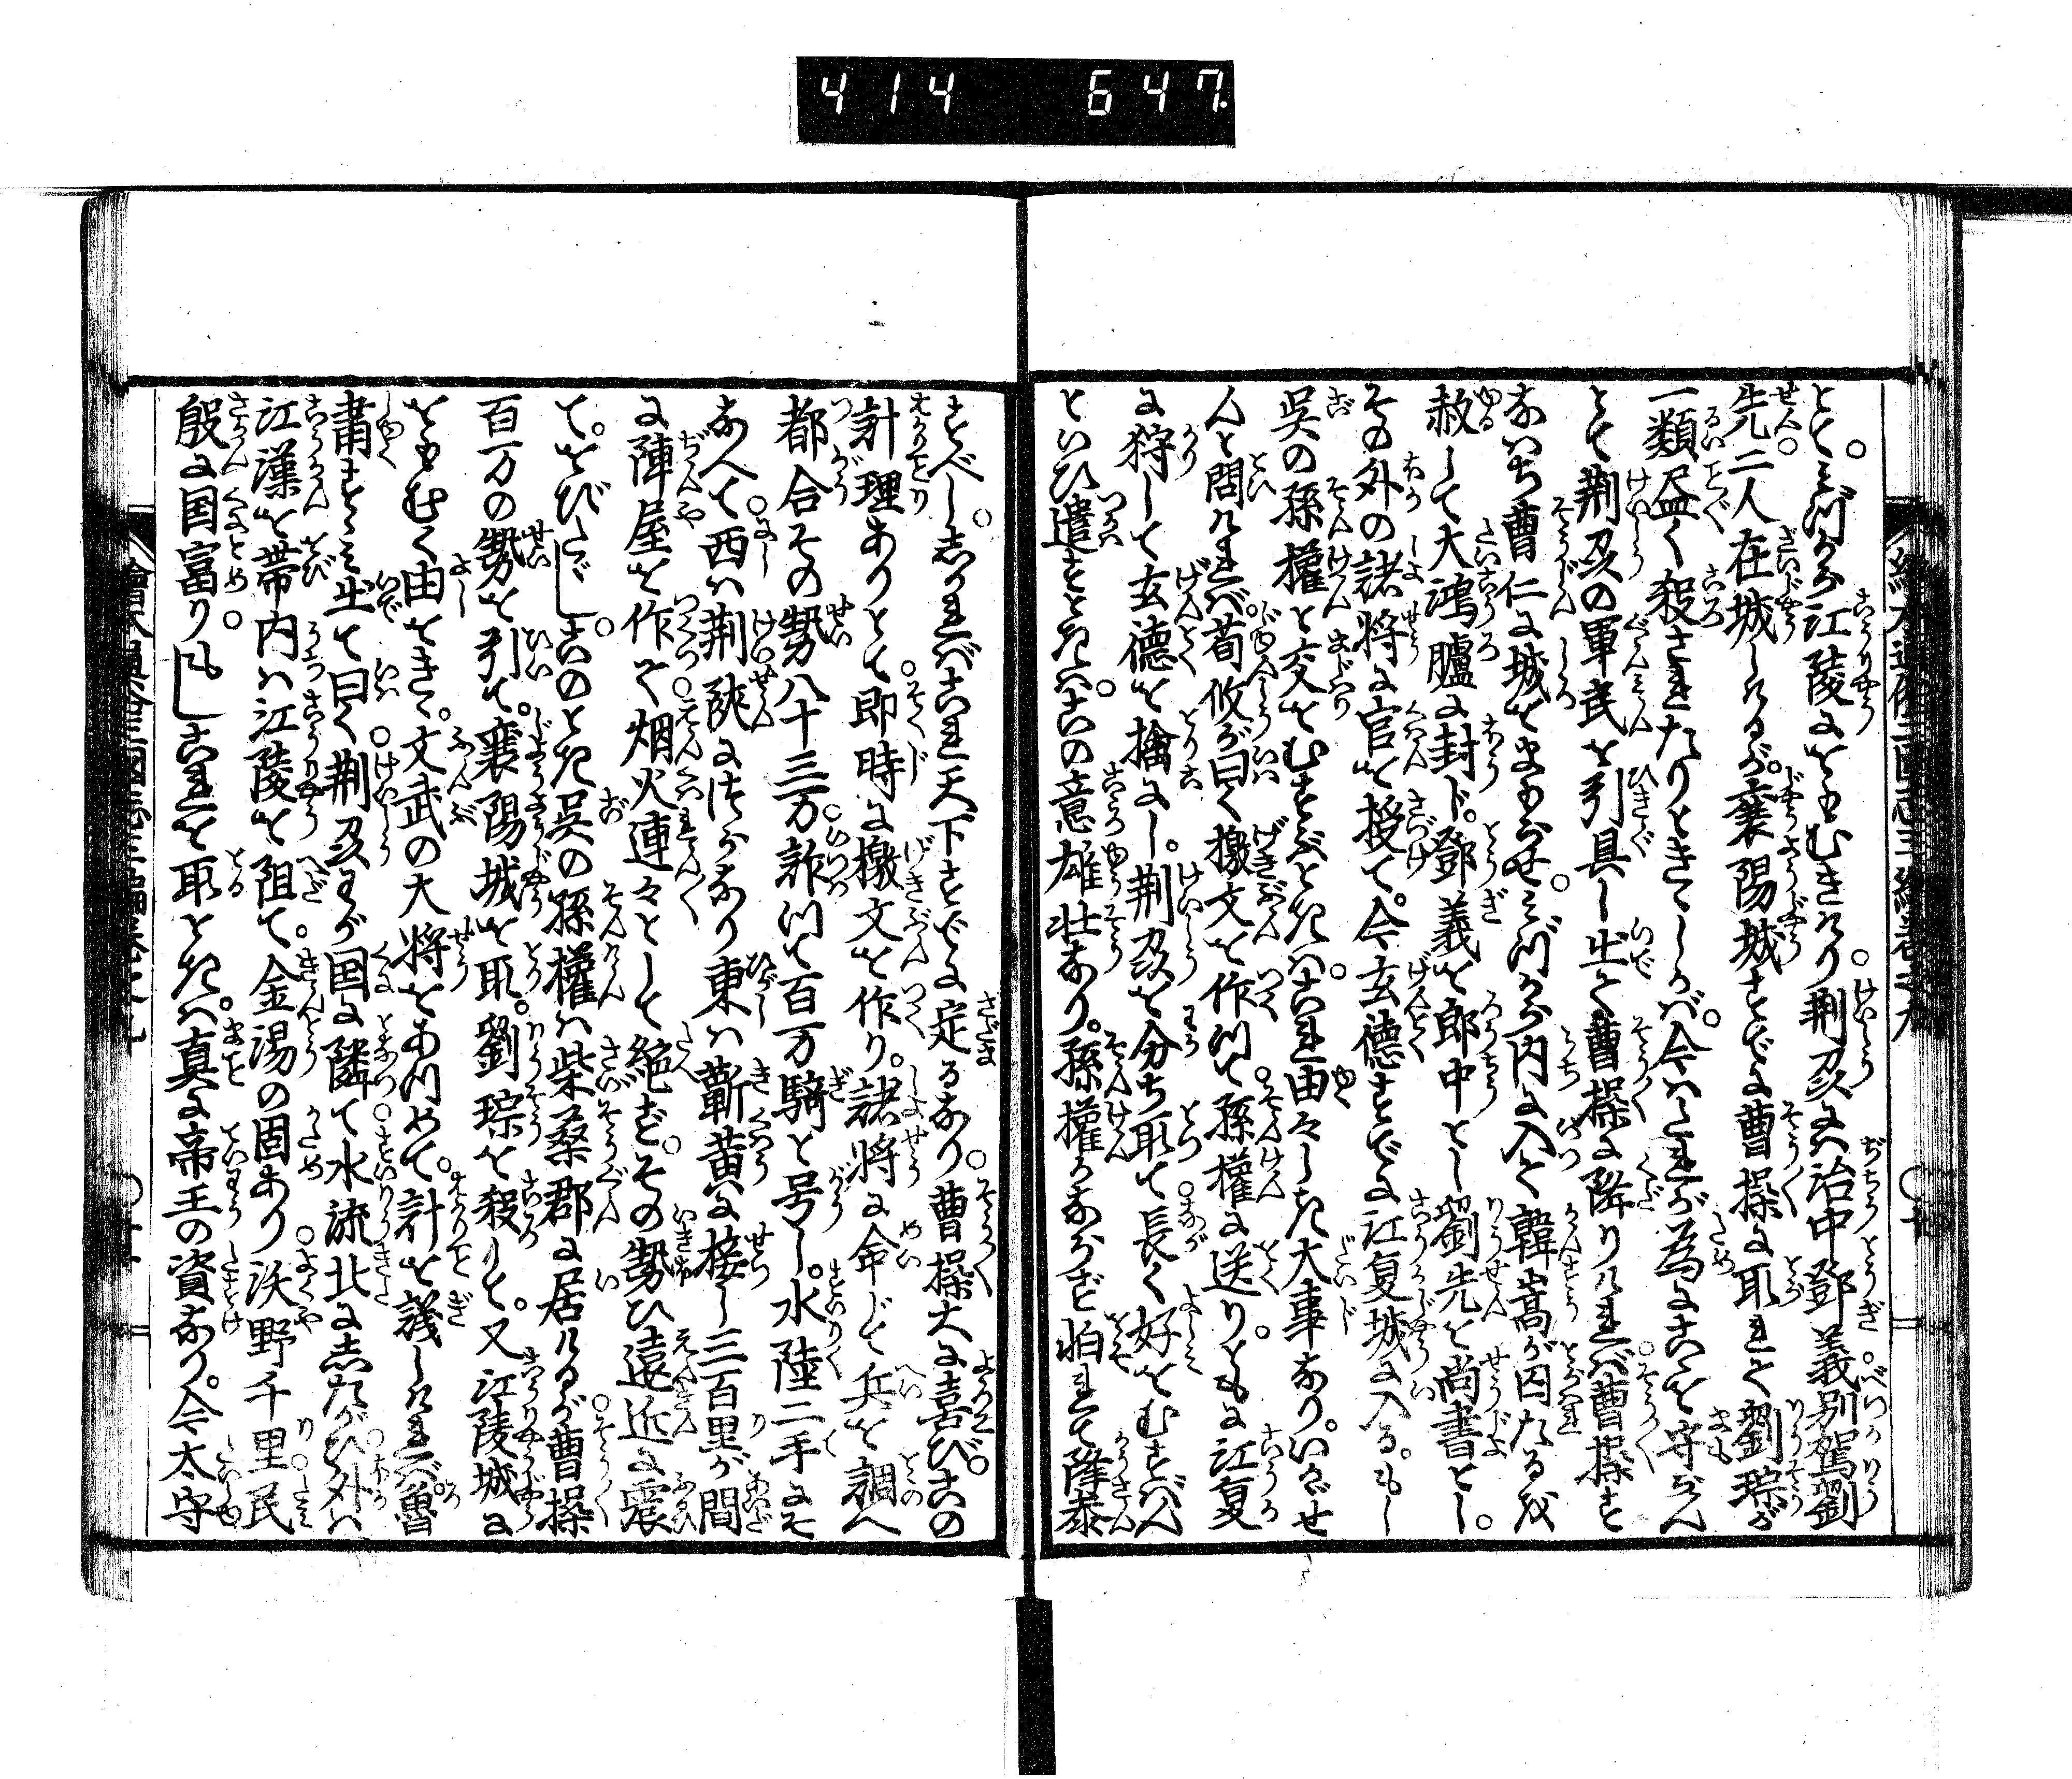 414 647
とてみづから江陵におもむきけり荆州には治中鄧義別駕劉
先二人在城しけるが襄陽城すでに曹操に取れて劉琮が
一類尽く殺されたりときこしかば今はたれが為にこれを守らん
とて荆州の軍民を引具し出て曹操に降りければ曹操す
なはち曹仁に城をまもらせみづから内に入て韓嵩が囚たるを
赦して大鴻臚に封じ鄧義を郎中とし劉先を尚書とし
その外の諸将に官を授て今玄德すでに江夏城に入るもし
呉の孫權と交をむすぶときはこれ由々しき大事なりいかゞせ
んと問ければ荀攸が曰く檄文を作つて孫權に送りともに江夏
に狩して玄德を擒にし荆州を分ち取て長く好をむすばん
といひ遣すときはこの意雄壮なり孫權かならず怕れて降参
すべししかればこれ天下すでに定るなり曹操大に喜びこの
計理ありとて即時に檄文を作り諸将に命じて兵を調へ
都合その勢八十三万詐つて百万騎と号し水陸二手にそ
なへて西は荆陝につらなり東は蘄黄に接し三百里が間
に陣屋を作て烟火連々として絶ずその勢ひ遠近に震
てをびたゞしこのとき呉の孫權は柴桑郡に居けるが曹操
百万の勢を引て襄陽城を取劉琮を殺して又江陵城に
をもむく由をきゝ文武の大将をあつめて計を議しければ魯
肅すゝみ出て曰く荆州わが国に隣て水流北にしたがひ外は
江漢を帯内は江陵を阻て金湯の固あり沃野千里民
殷に国富りもしこれを取ときは真に帝王の資なり今太守